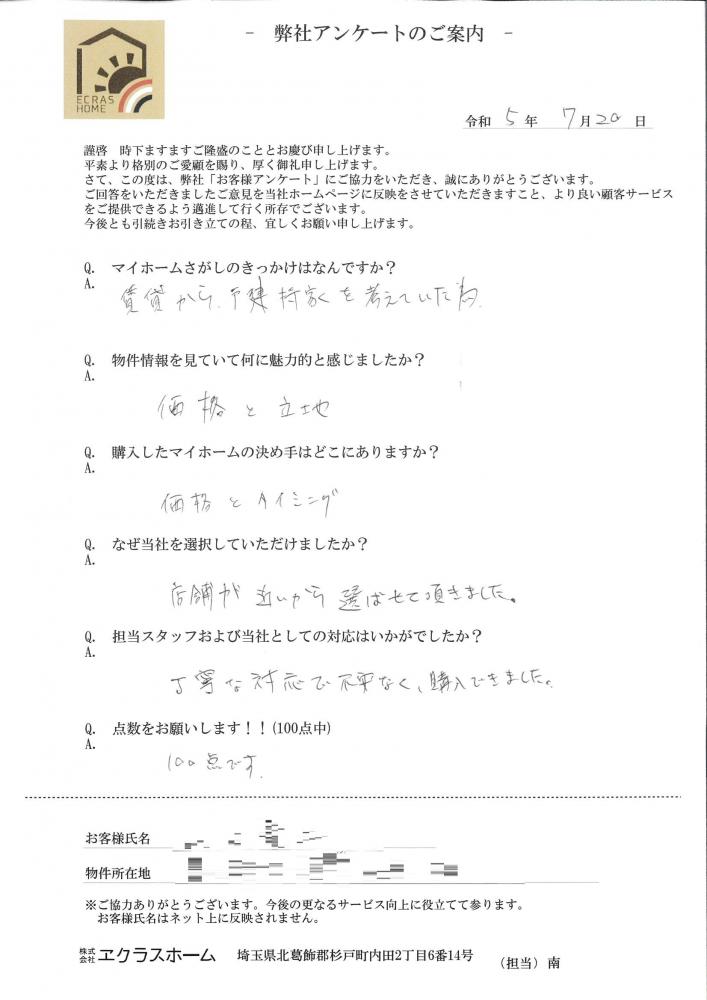 - 弊社アンケートのご案内 -
ECRAS
HOME
令和 5 年 7 月 20 日
謹啓 時下ますますご隆盛のこととお慶び申し上げます。
平素より格別のご愛顧を賜り、厚く御礼申し上げます。
さて、この度は、弊社「お客様アンケート」にご協力をいただき、誠にありがとうございます。
ご回答をいただきましたご意見を当社ホームページに反映をさせていただきますこと、より良い顧客サービス
をご提供できるよう邁進して行く所存でございます。
今後とも引続きお引き立ての程、宜しくお願い申し上げます。
Q. マイホームさがしのきっかけはなんですか？
A. 賃貸から、戸建持家を考えていた為
Q. 物件情報を見ていて何に魅力的と感じましたか？
A.
価格と立地
Q. 購入したマイホームの決め手はどこにありますか？
A.
価格とタイミング
Q. なぜ当社を選択していただけましたか？
A.
店舗が近いから選ばせて頂きました。
Q. 担当スタッフおよび当社としての対応はいかがでしたか？
A.
丁寧な対応で不平なく、購入できました。
Q. 点数をお願いします！！(100点中)
A.
100点です。
お客様氏名
物件所在地
※ご協力ありがとうございます。今後の更なるサービス向上に役立てて参ります。
お客様氏名はネット上に反映されません。
株式会社 ヱクラスホーム 埼玉県北葛飾郡杉戸町内田2丁目6番14号 （担当）南